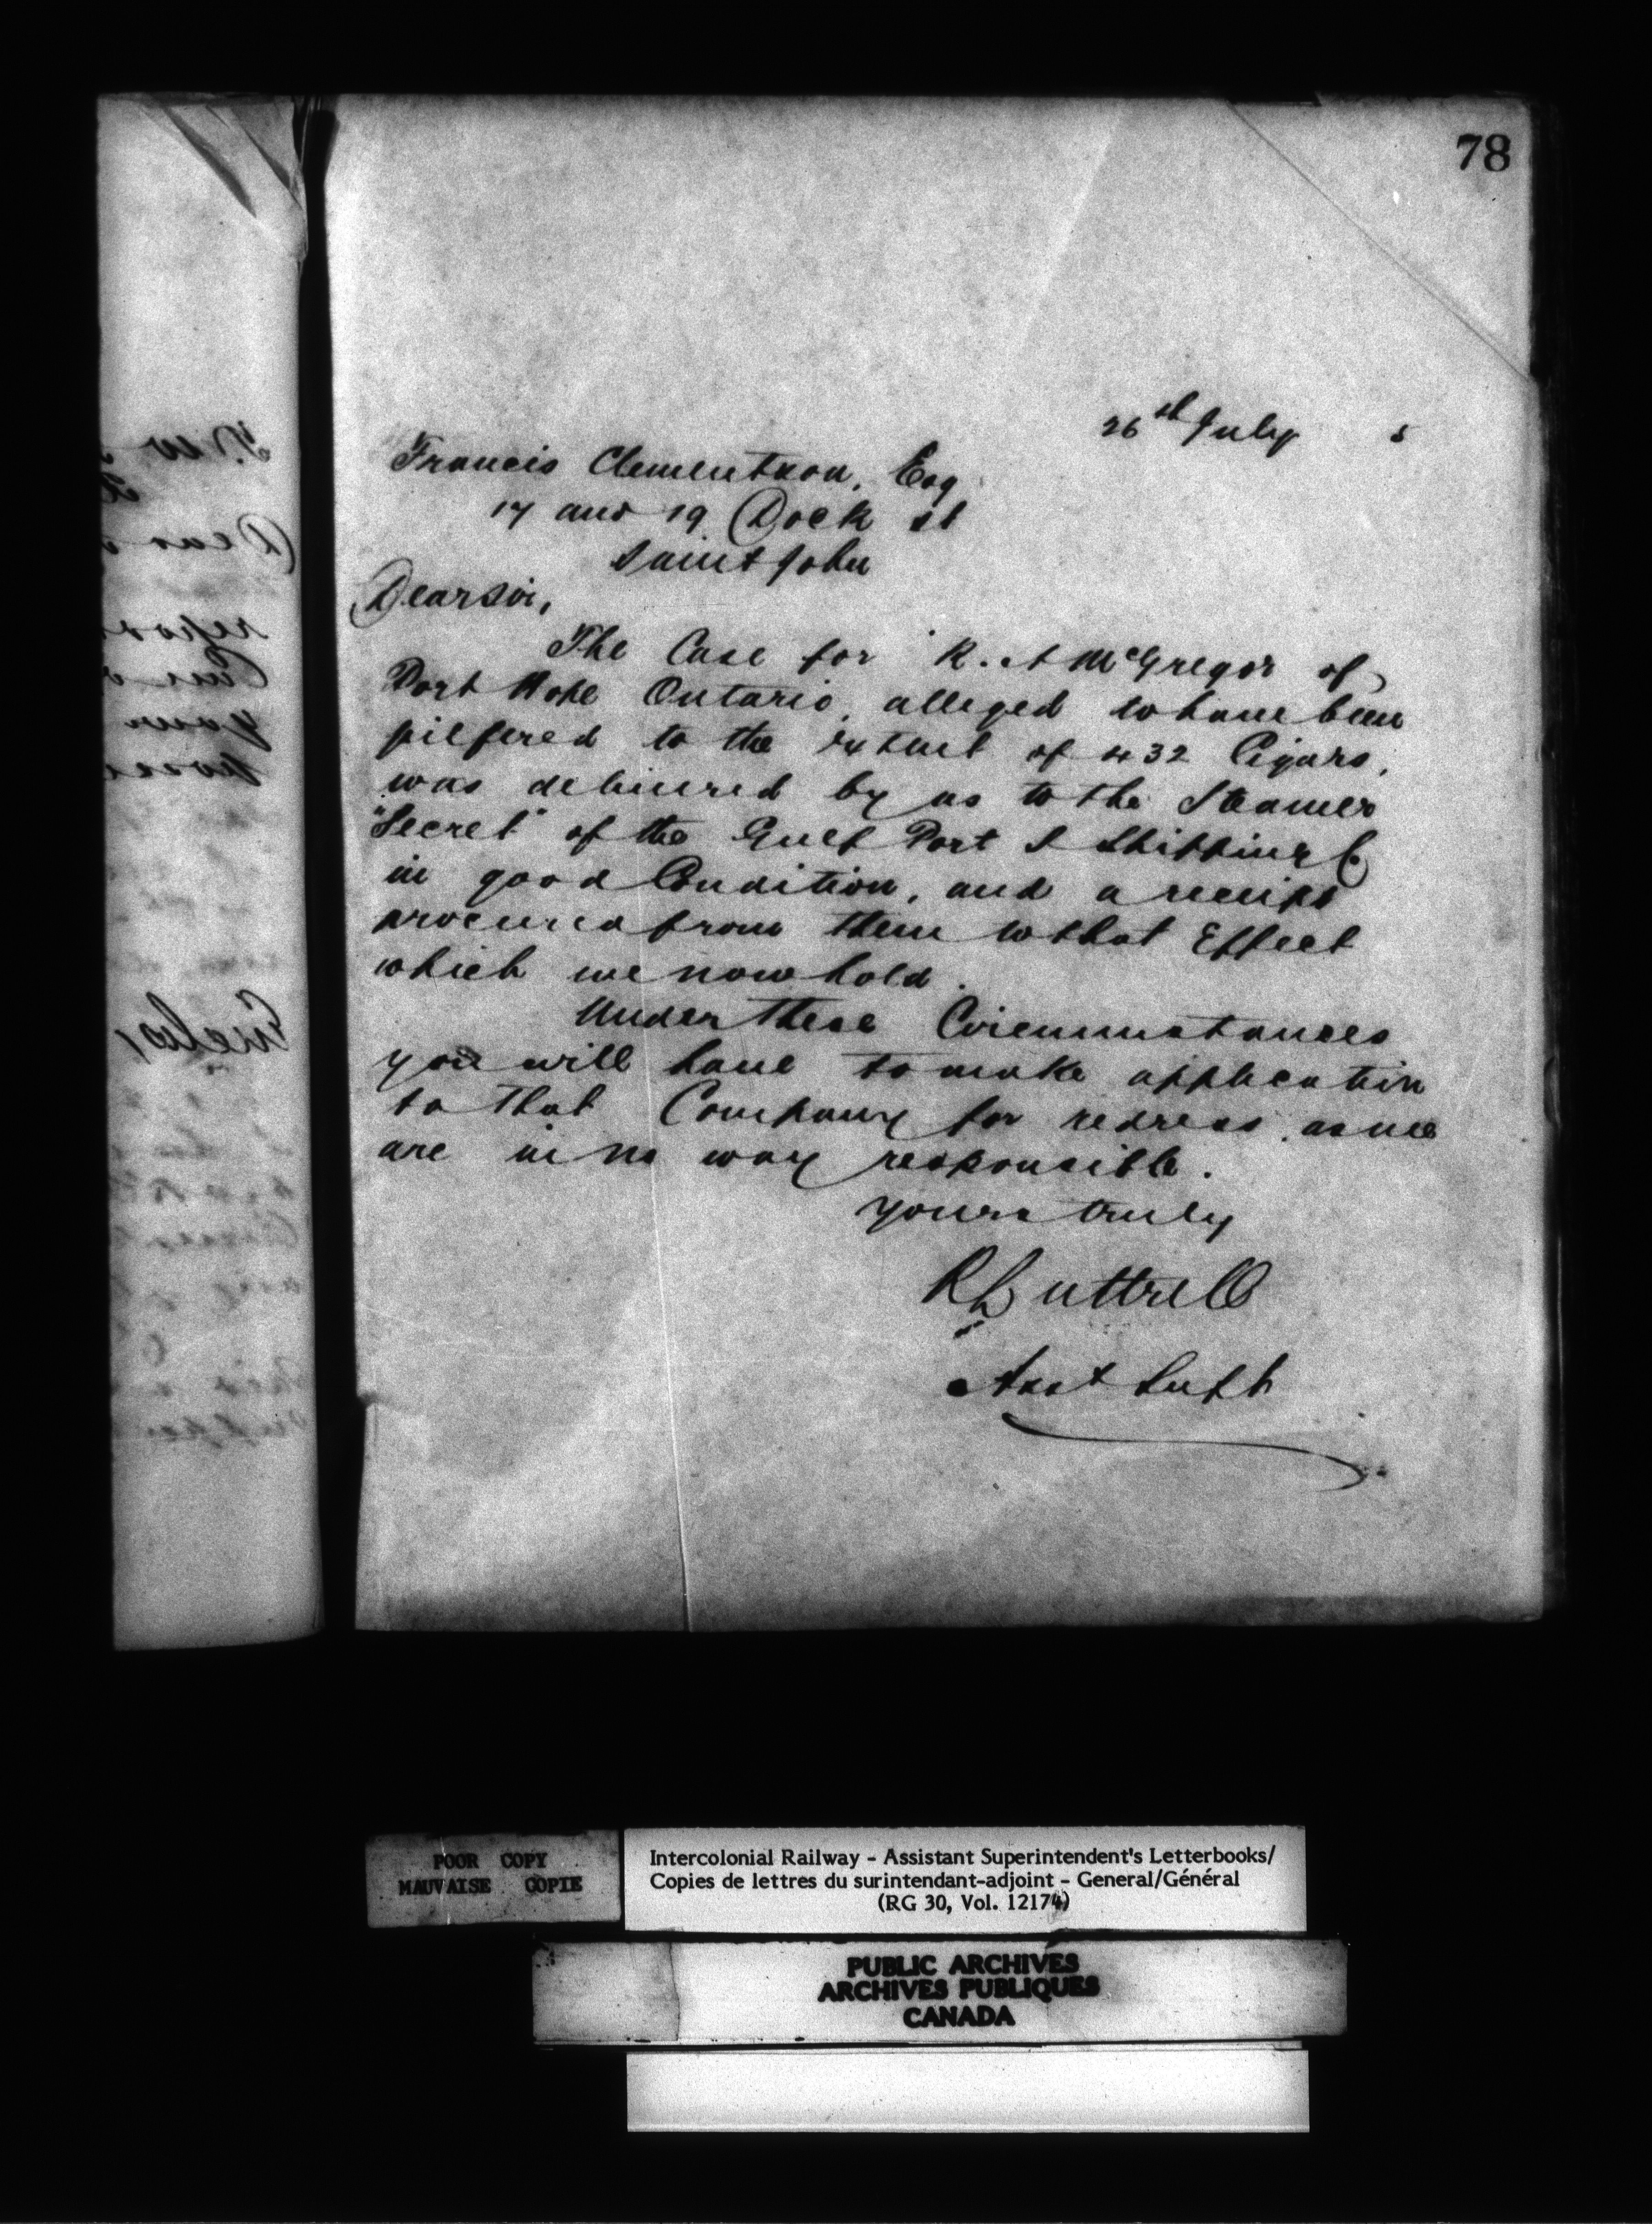 78
26th July 5
Francis Clementson, Esq
17 and 19 Dock St
Saint John
Dear Sir,
The Case for R. A McGregor of
Port Hope Ontario, alleged to have been
pilfered to the extent of 432 Cigars,
was delivered by us to the Steamer
"Secret" of the Gulf Port S Shipping Co
in good Condition, and a receipt
procured from them to that Effect
which we now hold.
Under these Circumstances
you will have to make application
to that Company for redress, as we
are in no way responsible.
Yours truly
R Luttrell
Asst Supt
POOR COPY
MAUVAISE COPIE
Intercolonial Railway - Assistant Superintendent's Letterbooks/
Copies de lettres du surintendant-adjoint - General/Général
(RG 30, Vol. 12174)
PUBLIC ARCHIVES
ARCHIVES PUBLIQUES
CANADA